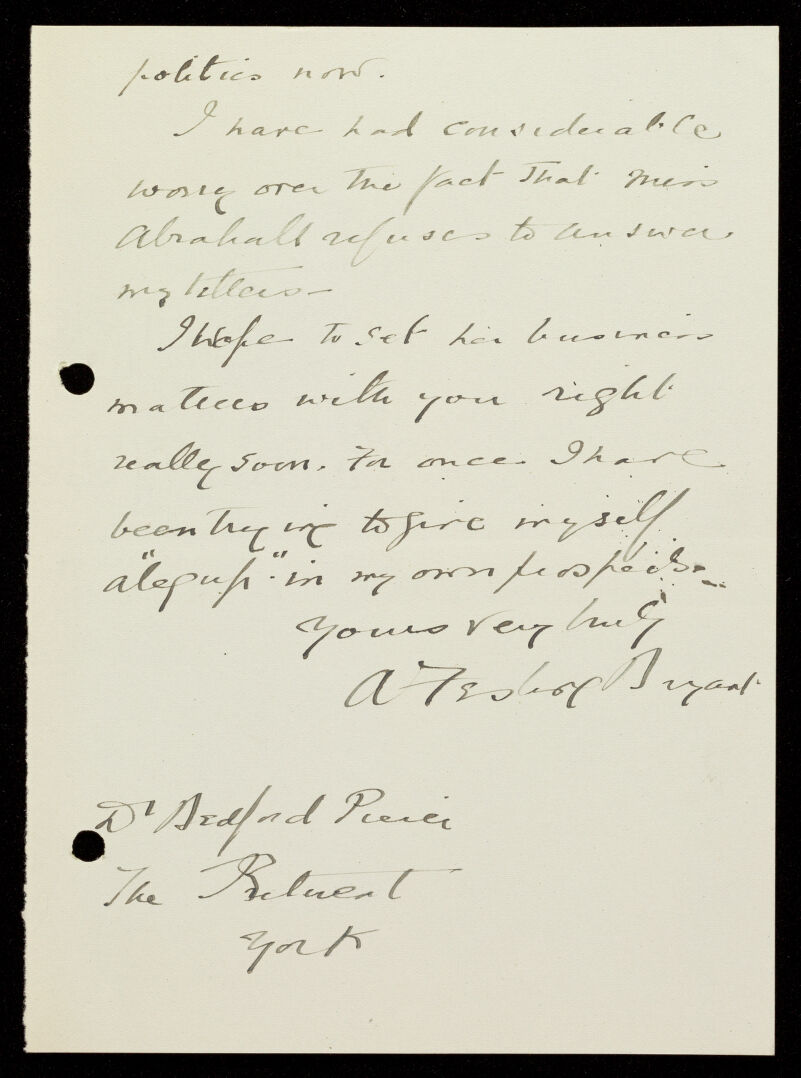 politics now.
I have had considerable
worry over the fact that Miss
Abrahall refuses to answer
my letters—
I hope to set her business
matters with you right
really soon. For once I have
been trying to give myself
a "leg up" in my own prospects.
Yours very truly
A Bryant
Dr Bedford Pierce
The Retreat
York